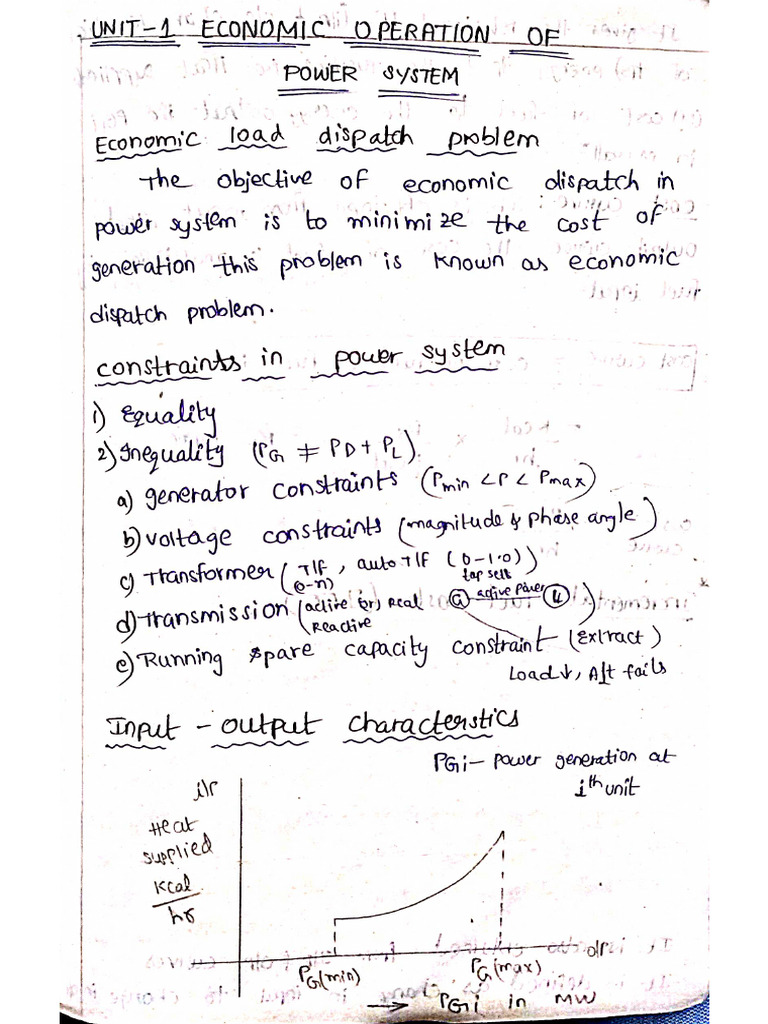 UNIT-1 ECONOMIC OPERATION OF
POWER SYSTEM
Economic load dispatch problem
The objective of economic dispatch in
power system is to minimize the cost of
generation this problem is known as economic
dispatch problem.
constraints in power system
1) Equality
2) Inequality (PG ≠ PD + PL)
a) generator constraints (Pmin < P < Pmax)
b) voltage constraints (magnitude & phase angle)
c) Transformer (T/F, auto T/F (0-1.0))
(0-n) tap sett
d) Transmission (active (or) Real G active power L)
Reactive
e) Running spare capacity constraint (Extract)
Load↓, Alt fails
Input - output characterstics
PGi - power generation at
ith unit
i/p
Heat
supplied
Kcal
hr
o/p
PG(min) PG(max)
→ PGi in MW